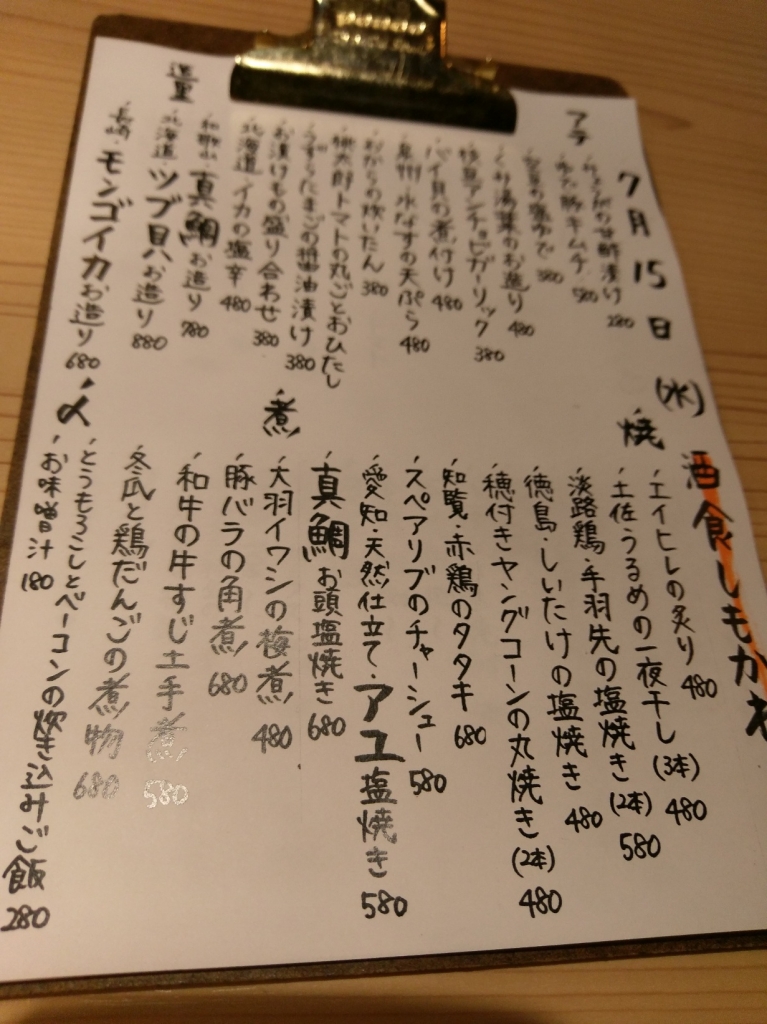 7月15日(水) 酒食しもがわ
アテ
甘酢漬け 280
豚キムチ 580
塩ゆで 380
くみ湯葉のお造り 480
アンチョビガーリック 380
バイ貝の煮付け 480
泉州・水なすの天ぷら 480
おからの炊いたん 380
桃太郎トマトの丸ごとおひたし
うずらたまごの醤油漬け 380
お漬けもの盛り合わせ 380
北海道 イカの塩辛 480
造里
和歌山 真鯛お造り 780
北海道 ツブ貝お造り 880
長崎・モンゴイカお造り 680
焼
エイヒレの炙り 480
土佐・うるめの一夜干し(3本) 480
淡路鶏・手羽先の塩焼き(2本) 580
徳島・しいたけの塩焼き 480
穂付きヤングコーンの丸焼き(2本) 480
知覧・赤鶏のタタキ 680
スペアリブのチャーシュー 580
愛知・天然仕立て・アユ塩焼き 580
真鯛お頭塩焼き 680
煮
大羽イワシの梅煮 480
豚バラの角煮 680
和牛の牛すじ土手煮 580
冬瓜と鶏だんごの煮物 680
〆
とうもろこしとベーコンの炊き込みご飯 280
お味噌汁 180